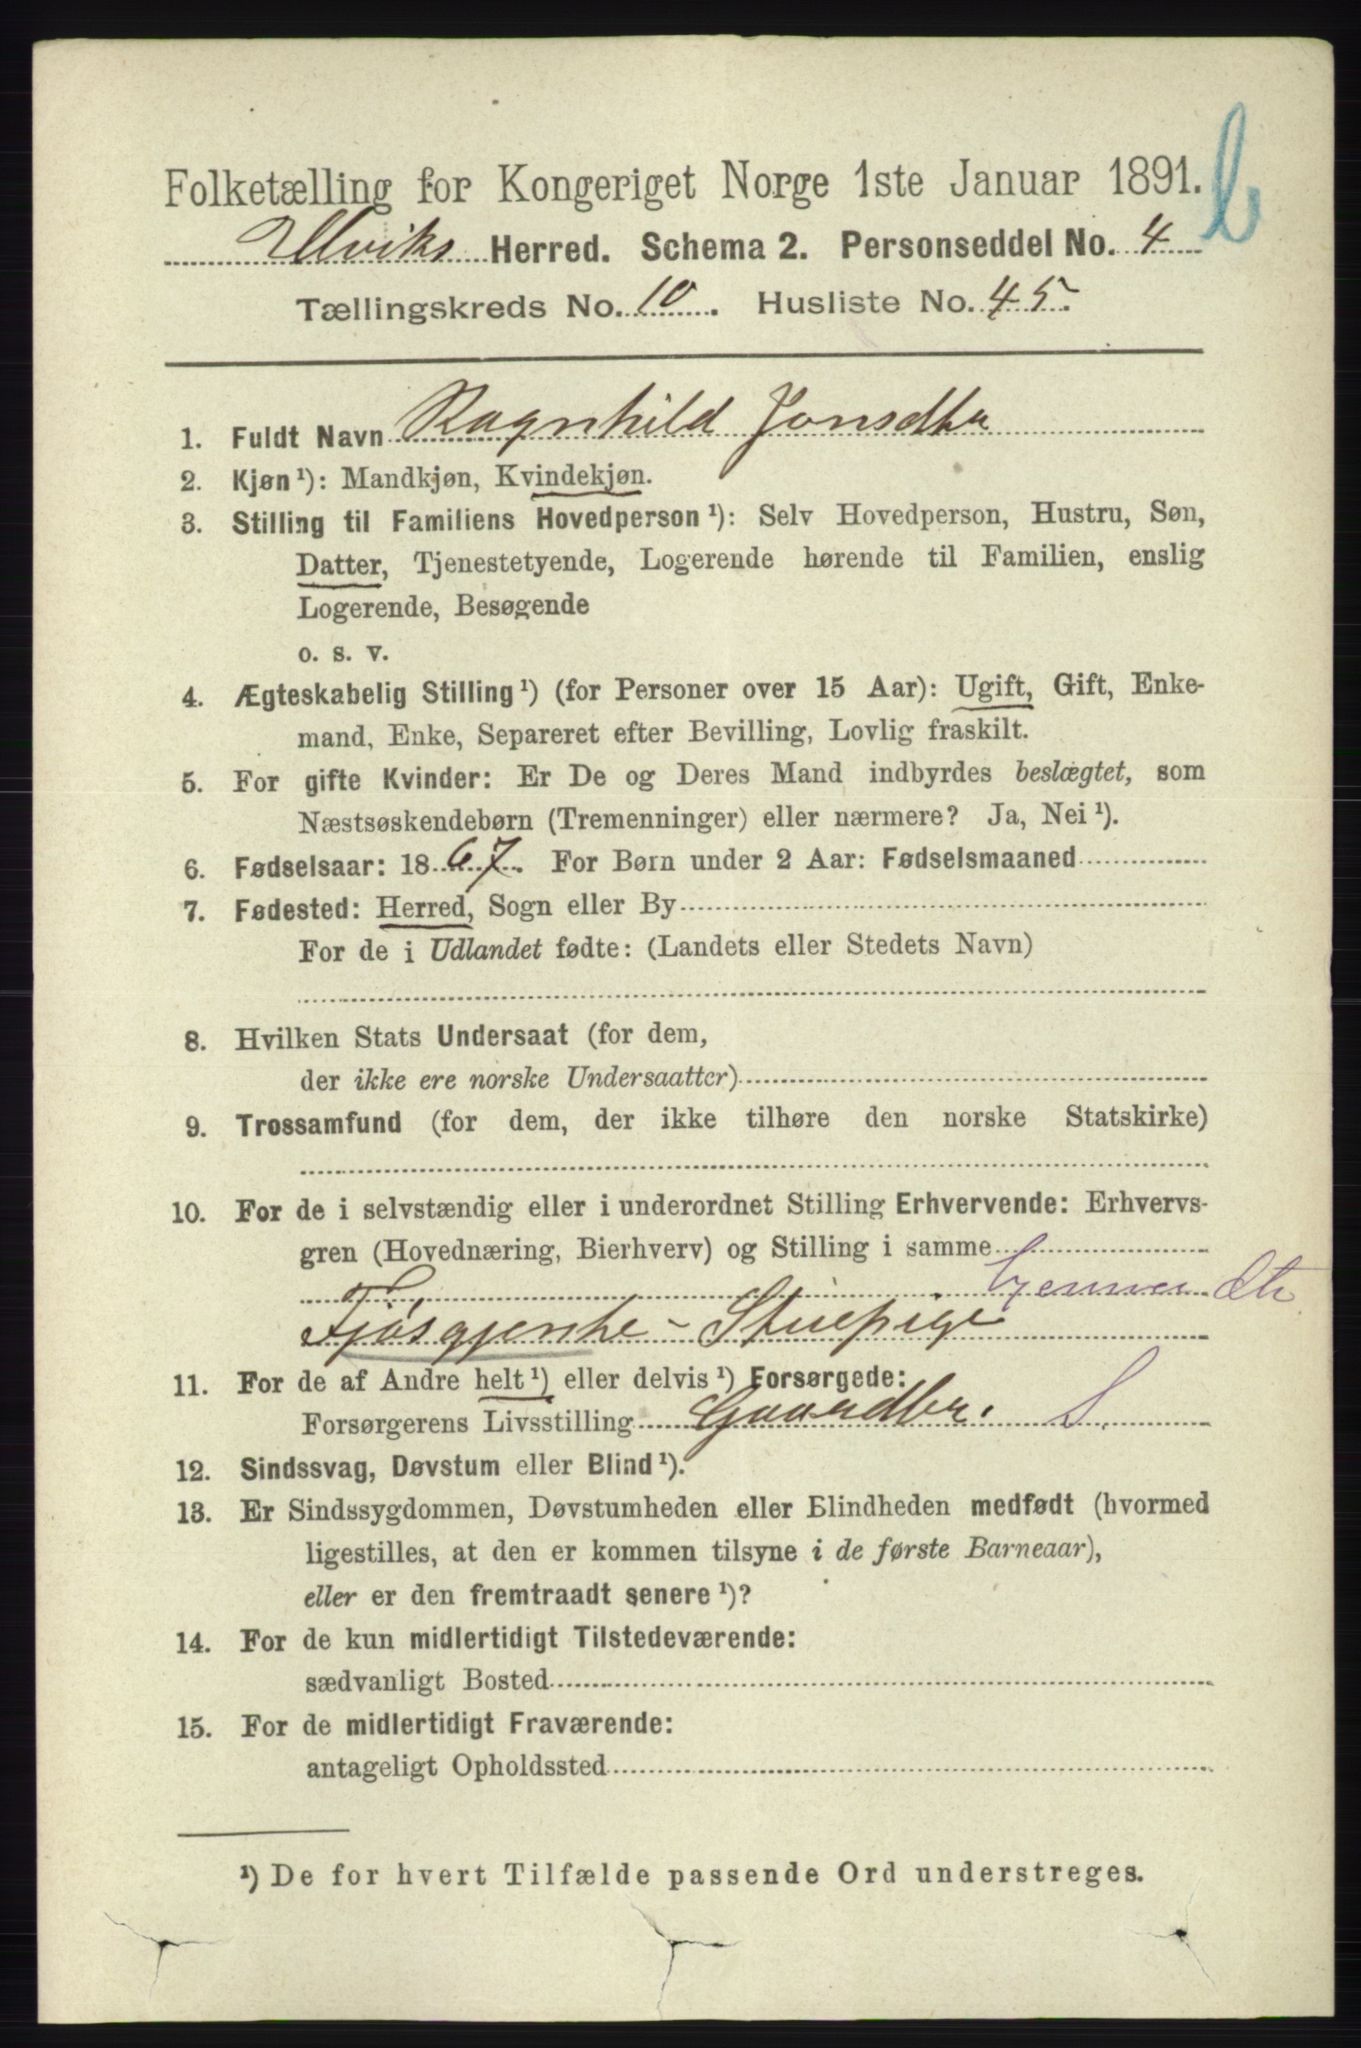 b
Folketælling for Kongeriget Norge 1ste Januar 1891.
Ulviks Herred. Schema 2. Personseddel No. 4
Tællingskreds No. 10. Husliste No. 45.
1. Fuldt Navn Ragnhild Jonsdtr
2. Kjøn¹): Mandkjøn, Kvindekjøn.
3. Stilling til Familiens Hovedperson¹): Selv Hovedperson, Hustru, Søn,
Datter, Tjenestetyende, Logerende hørende til Familien, enslig
Logerende, Besøgende
o. s. v.
4. Ægteskabelig Stilling¹) (for Personer over 15 Aar): Ugift, Gift, Enke-
mand, Enke, Separeret efter Bevilling, Lovlig fraskilt.
5. For gifte Kvinder: Er De og Deres Mand indbyrdes beslægtet, som
Næstsøskendebørn (Tremenninger) eller nærmere? Ja, Nei¹).
6. Fødselsaar: 1867. For Børn under 2 Aar: Fødselsmaaned
7. Fødested: Herred, Sogn eller By
For de i Udlandet fødte: (Landets eller Stedets Navn)
8. Hvilken Stats Undersaat (for dem,
der ikke ere norske Undersaatter)
9. Trossamfund (for dem, der ikke tilhøre den norske Statskirke)
10. For de i selvstændig eller i underordnet Stilling Erhvervende: Erhvervs-
gren (Hovednæring, Bierhverv) og Stilling i samme
Fjøsgjente - Stuepige
11. For de af Andre helt¹) eller delvis¹) Forsørgede:
Forsørgerens Livsstilling Gaardbr. S.
12. Sindssvag, Døvstum eller Blind¹).
13. Er Sindssygdommen, Døvstumheden eller Blindheden medfødt (hvormed
ligestilles, at den er kommen tilsyne i de første Barneaar),
eller er den fremtraadt senere¹)?
14. For de kun midlertidigt Tilstedeværende:
sædvanligt Bosted
15. For de midlertidigt Fraværende:
antageligt Opholdssted
¹) De for hvert Tilfælde passende Ord understreges.